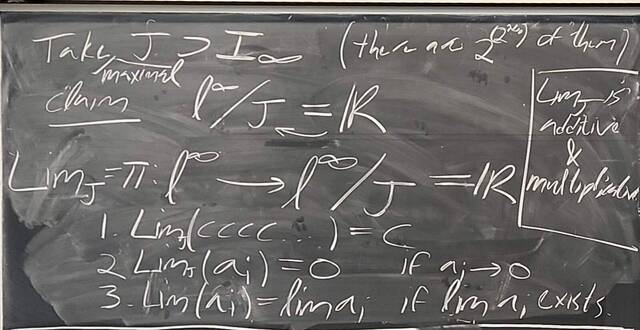 Take J ⊃ I_∞ (there are 2^{2^{ℵ_0}} of them)
maximal
claim ℓ^∞/J = ℝ
Lim_J is
additive
&
multiplicative
Lim_J = π: ℓ^∞ → ℓ^∞/J = ℝ
1. Lim_J(cccc...) = c
2. Lim_J(a_i) = 0 if a_i → 0
3. Lim(a_i) = lim a_i if lim a_i exists.